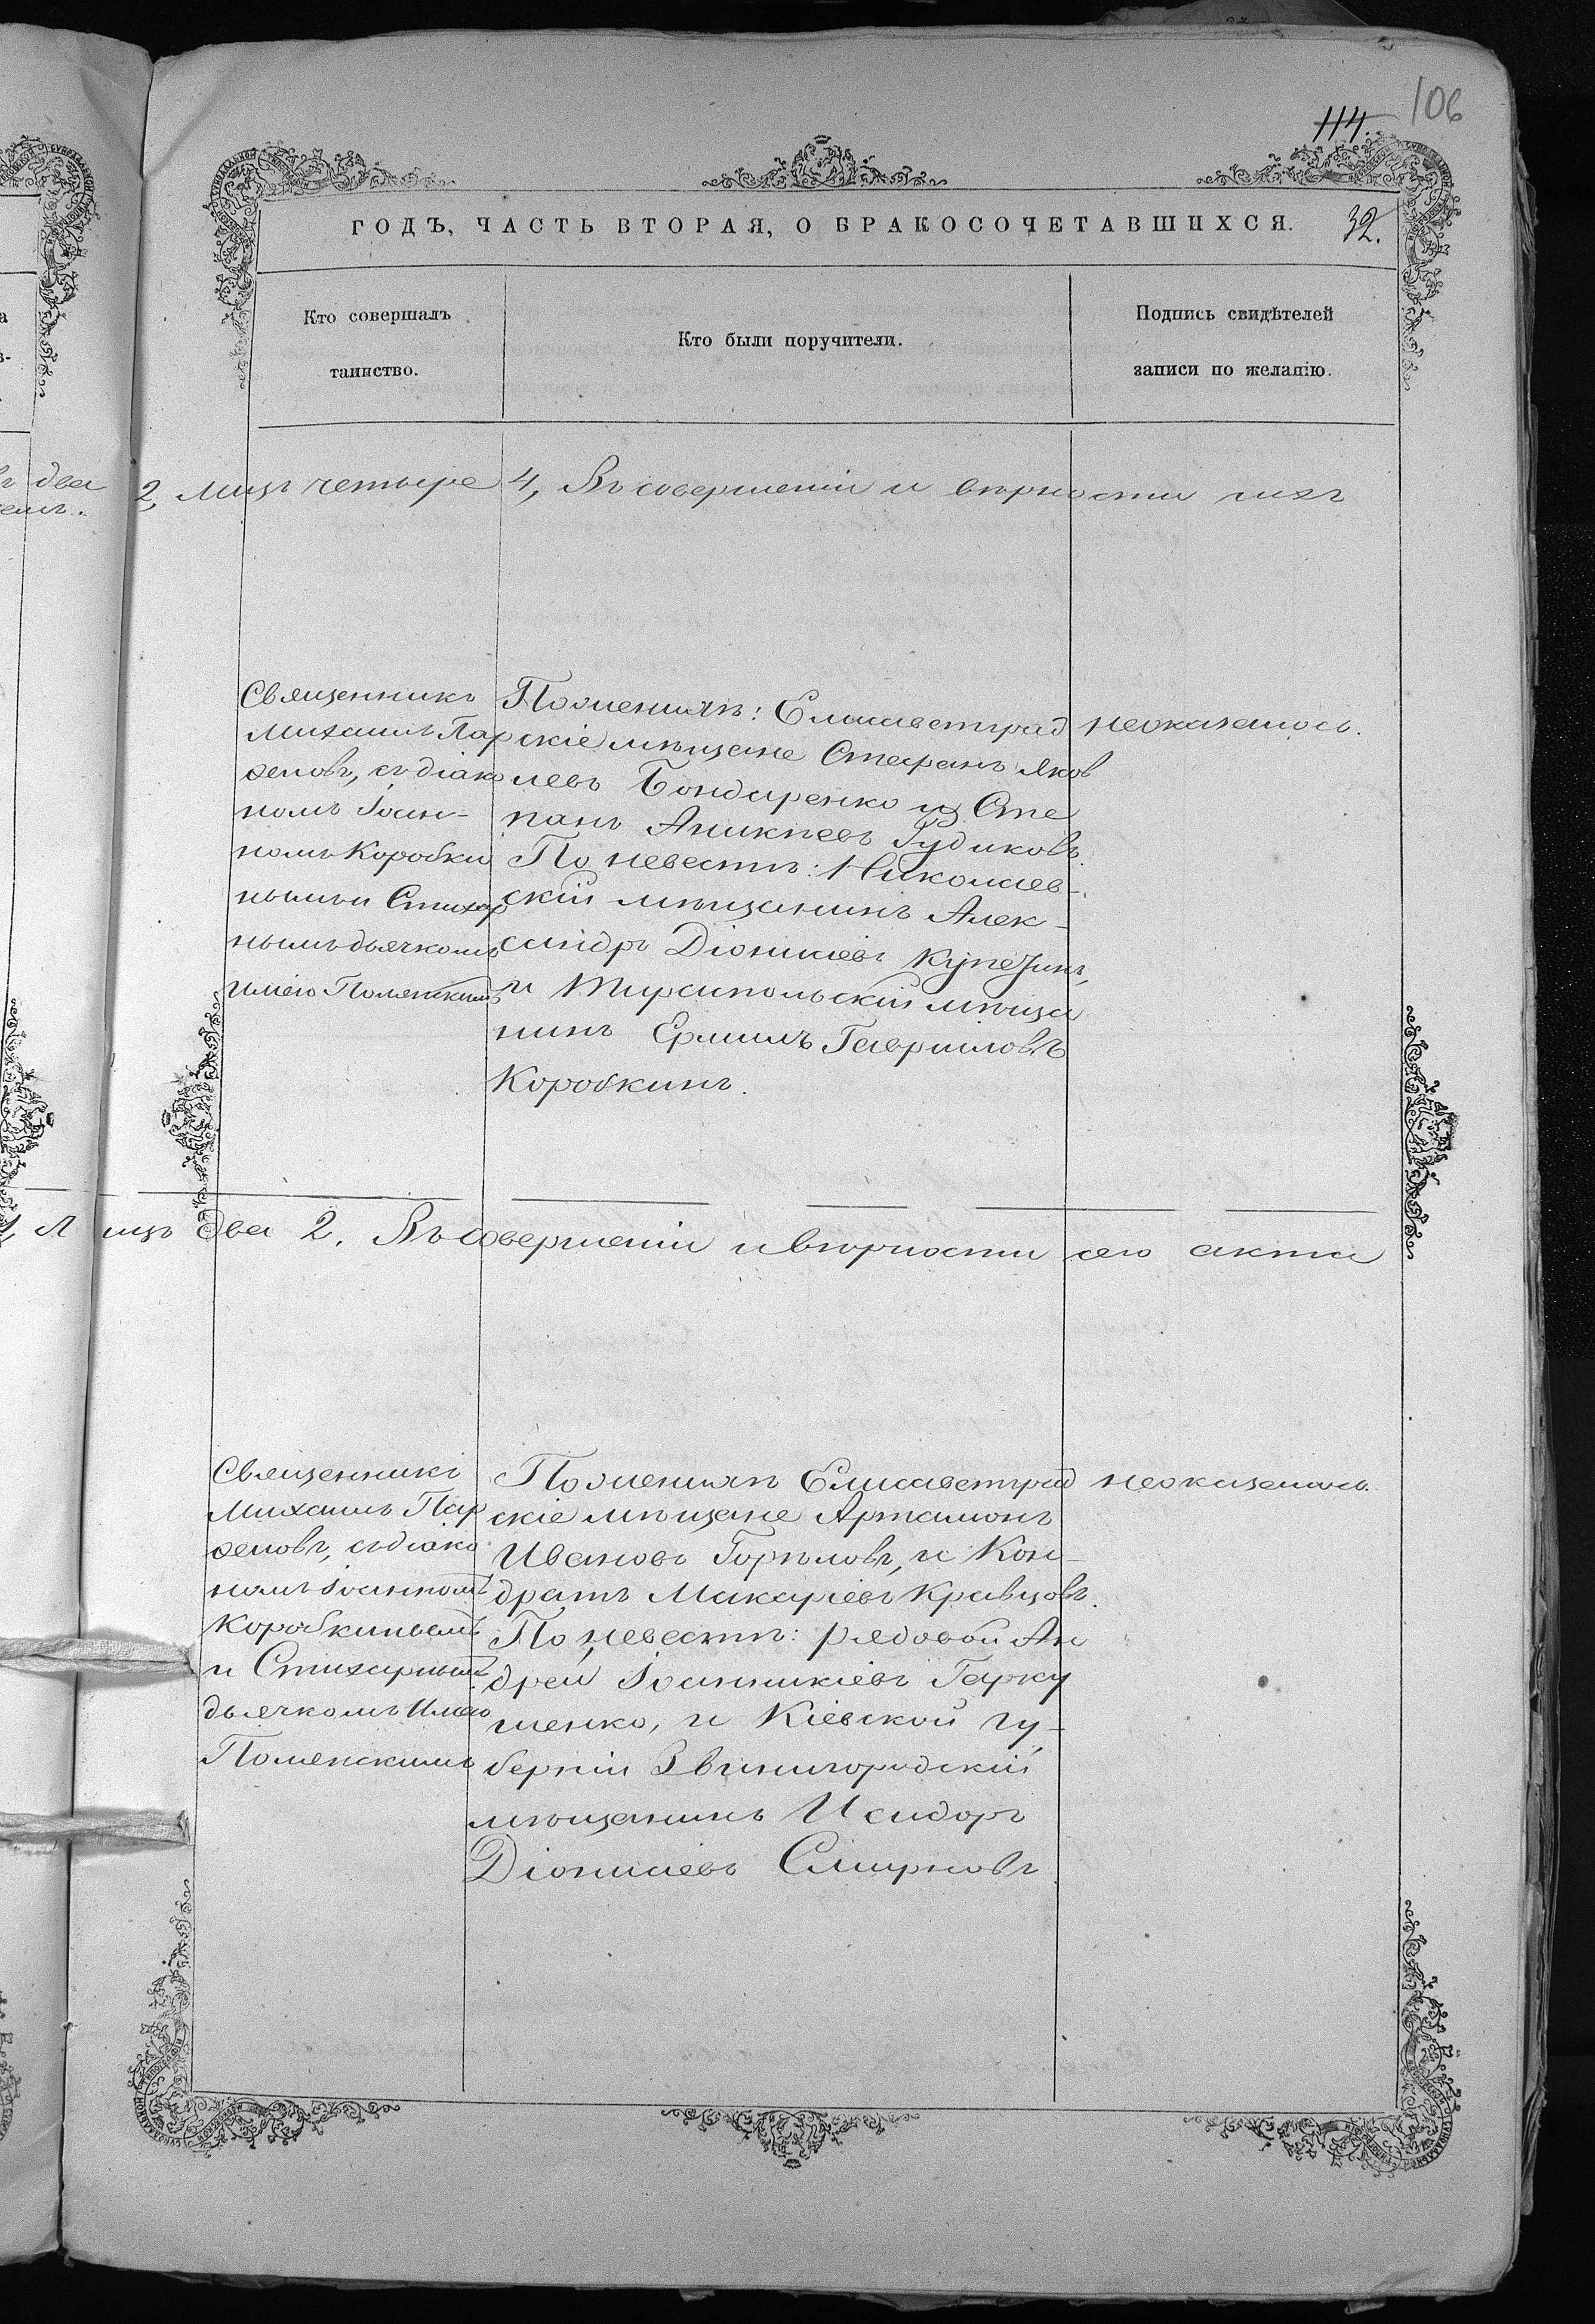 106
114.
ГОДЪ, ЧАСТЬ ВТОРАЯ, О БРАКОСОЧЕТАВШИХСЯ.
32.
Кто совершалъ
таинство.
Кто были поручители.
Подпись свидѣтелей
записи по желанію.
два
2, Лицъ четыре 4, Въ совершеніи и вѣрности ихъ
Священникъ
Михаилъ Пар
ѳеновъ, съ діако
номъ Іоан-
номъ Коробки
нымъ и Стихар
нымъ дьячкомъ
Иліею Поленскимъ
По женихѣ: Елисаветград
скіе мѣщане Стефанъ Яков
левъ Бондаренко и Сте
панъ Аникіевъ Гудиковъ.
По невѣстѣ: Николаев-
скій мѣщанинъ Алек-
сандръ Діонисіевъ
и Тираспольскій мѣща
нинъ Ермилъ Гавриловъ
Коробкинъ.
не оказалось.
Лицъ два 2. Въ совершеніи и вѣрности сего акта
Священникъ
Михаилъ Пар
ѳеновъ, съ діако
номъ Іоанномъ
Коробкинымъ
и Стихарнымъ
дьячкомъ Иліею
Поленскимъ
По женихѣ Елисаветград
скіе мѣщане Артамонъ
Ивановъ Горѣловъ, и Кон-
дратъ Макаріевъ Кравцовъ.
По невѣстѣ: рядовой Ан
дрей Іоанникіевъ Гарку
шенко, и Кіевской гу-
берніи Звинигородскій
мѣщанинъ Исидоръ
Діонисіевъ Смирновъ
не оказалось.